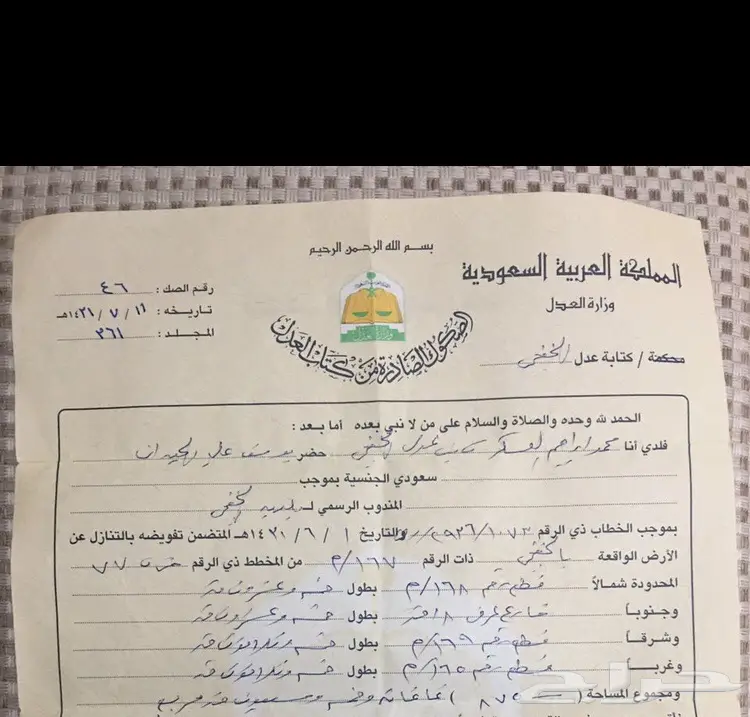 بسم الله الرحمن الرحيم
المملكة العربية السعودية
وزارة العدل
محكمة / كتابة عدل الخفجي
رقم الصك : ٤٦
تاريخه : ١١ / ٧ / ١٤٢١هـ
المجلد : ٣٦١
الصكوك الصادرة من كتاب العدل
الحمد لله وحده والصلاة والسلام على من لا نبي بعده أما بعد :
فلدي أنا محمد ابراهيم العسكر كاتب عدل الخفجي حضر يوسف علي
سعودي الجنسية بموجب
المندوب الرسمي لـ بلدية الخفجي
بموجب الخطاب ذي الرقم والتاريخ ١ / ٦ / ١٤٢١هـ المتضمن تفويضه بالتنازل عن
الأرض الواقعة بالخفجي ذات الرقم ١٦٧/م من المخطط ذي الرقم
المحدودة شمالاً قطعة رقم ١٦٨/م بطول خمسة وعشرون متر
وجنوباً شارع عرض ١٨ متر بطول خمسة وعشرون متر
وشرقاً قطعة رقم ١٦٩/م بطول خمسة وثلاثون متر
وغرباً قطعة رقم ١٦٥/م بطول خمسة وثلاثون متر
ومجموع المساحة ( ٨٧٥ ) ثمانمائة وخمسة وسبعون متر مربع
حراج